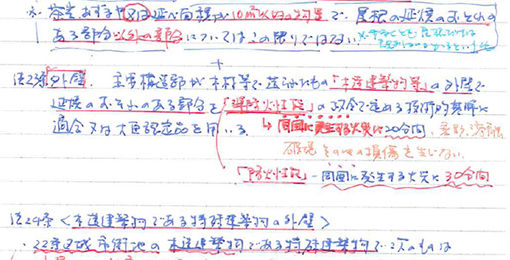 ※ 茶室、あずまや又は延べ面積が10m²以内の物置で、屋根の延焼のおそれの
ある部分以外の部分については、この限りではない。
法23条 外壁. 主要構造部が木材等で造られたもの「木造建築物等」の外壁で
延焼のおそれのある部分を「準防火性能」の政令で定める技術的基準に
適合又は大臣認定品を用いる。
↳ 周囲に発生する火災に20分間、変形、溶融、
破壊その他の損傷を生じない。
「防火性能」- 周囲に発生する火災に30分間
法24条 <木造建築物である特殊建築物の外壁>
・22条区域市街地の木造建築物である特殊建築物で次のものは